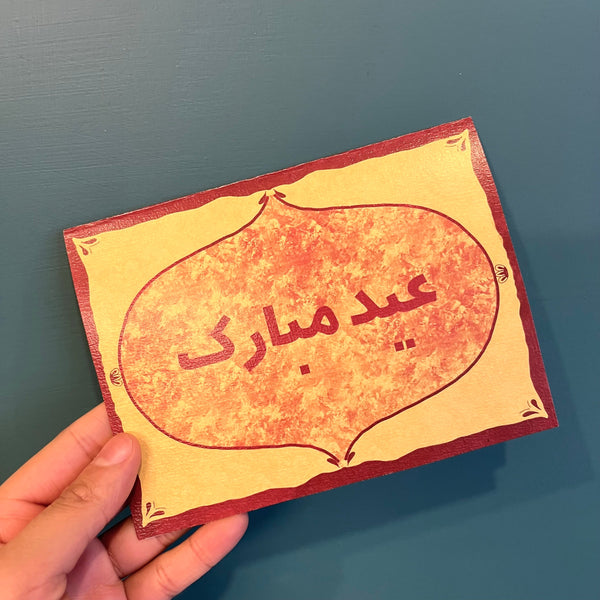 عيد مبارک